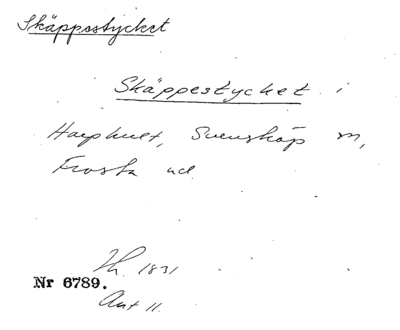 Skäppestycket
Skäppestycket i
Harphult, Svensköp sn,
Frosta hd
1831
Nr 6789.
Ant 11.